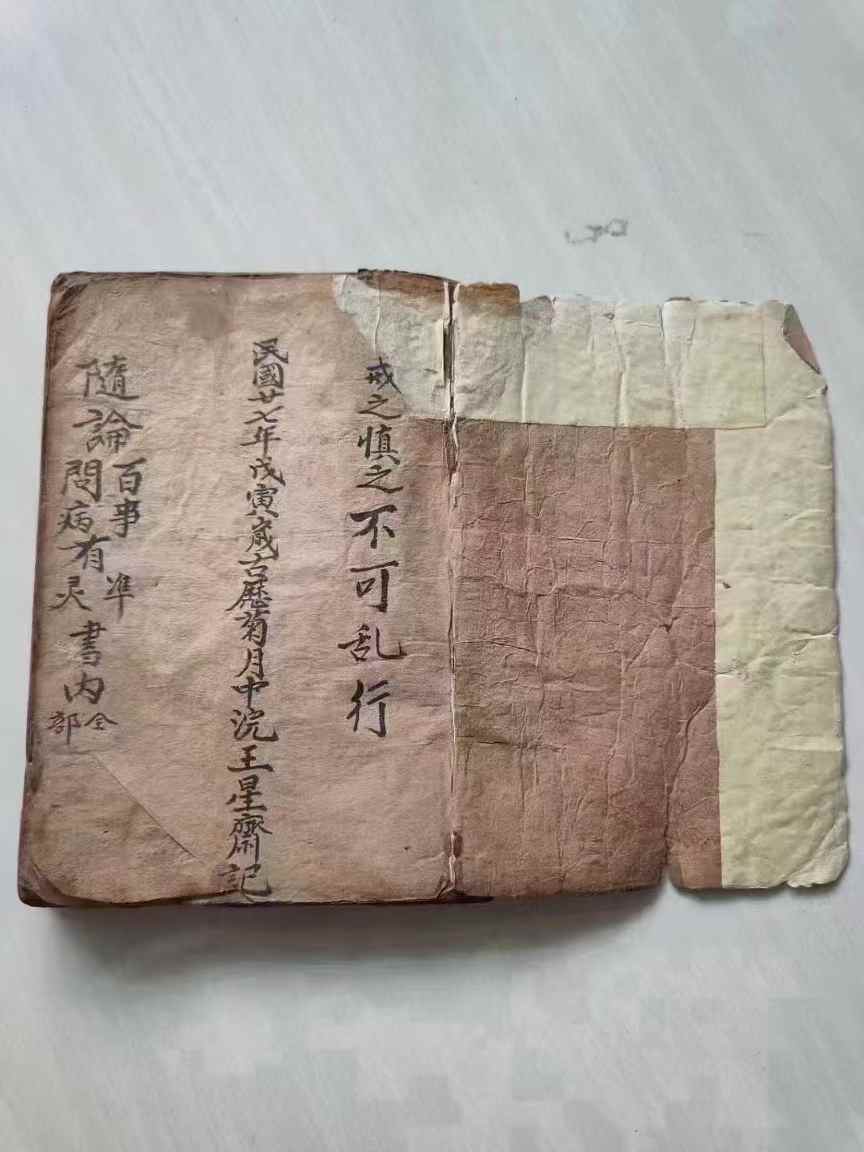 戒之慎之不可乱行
民國廿七年戊寅歲古歷菊月中浣王星齋記
隨論百事準問病有灵書内全部